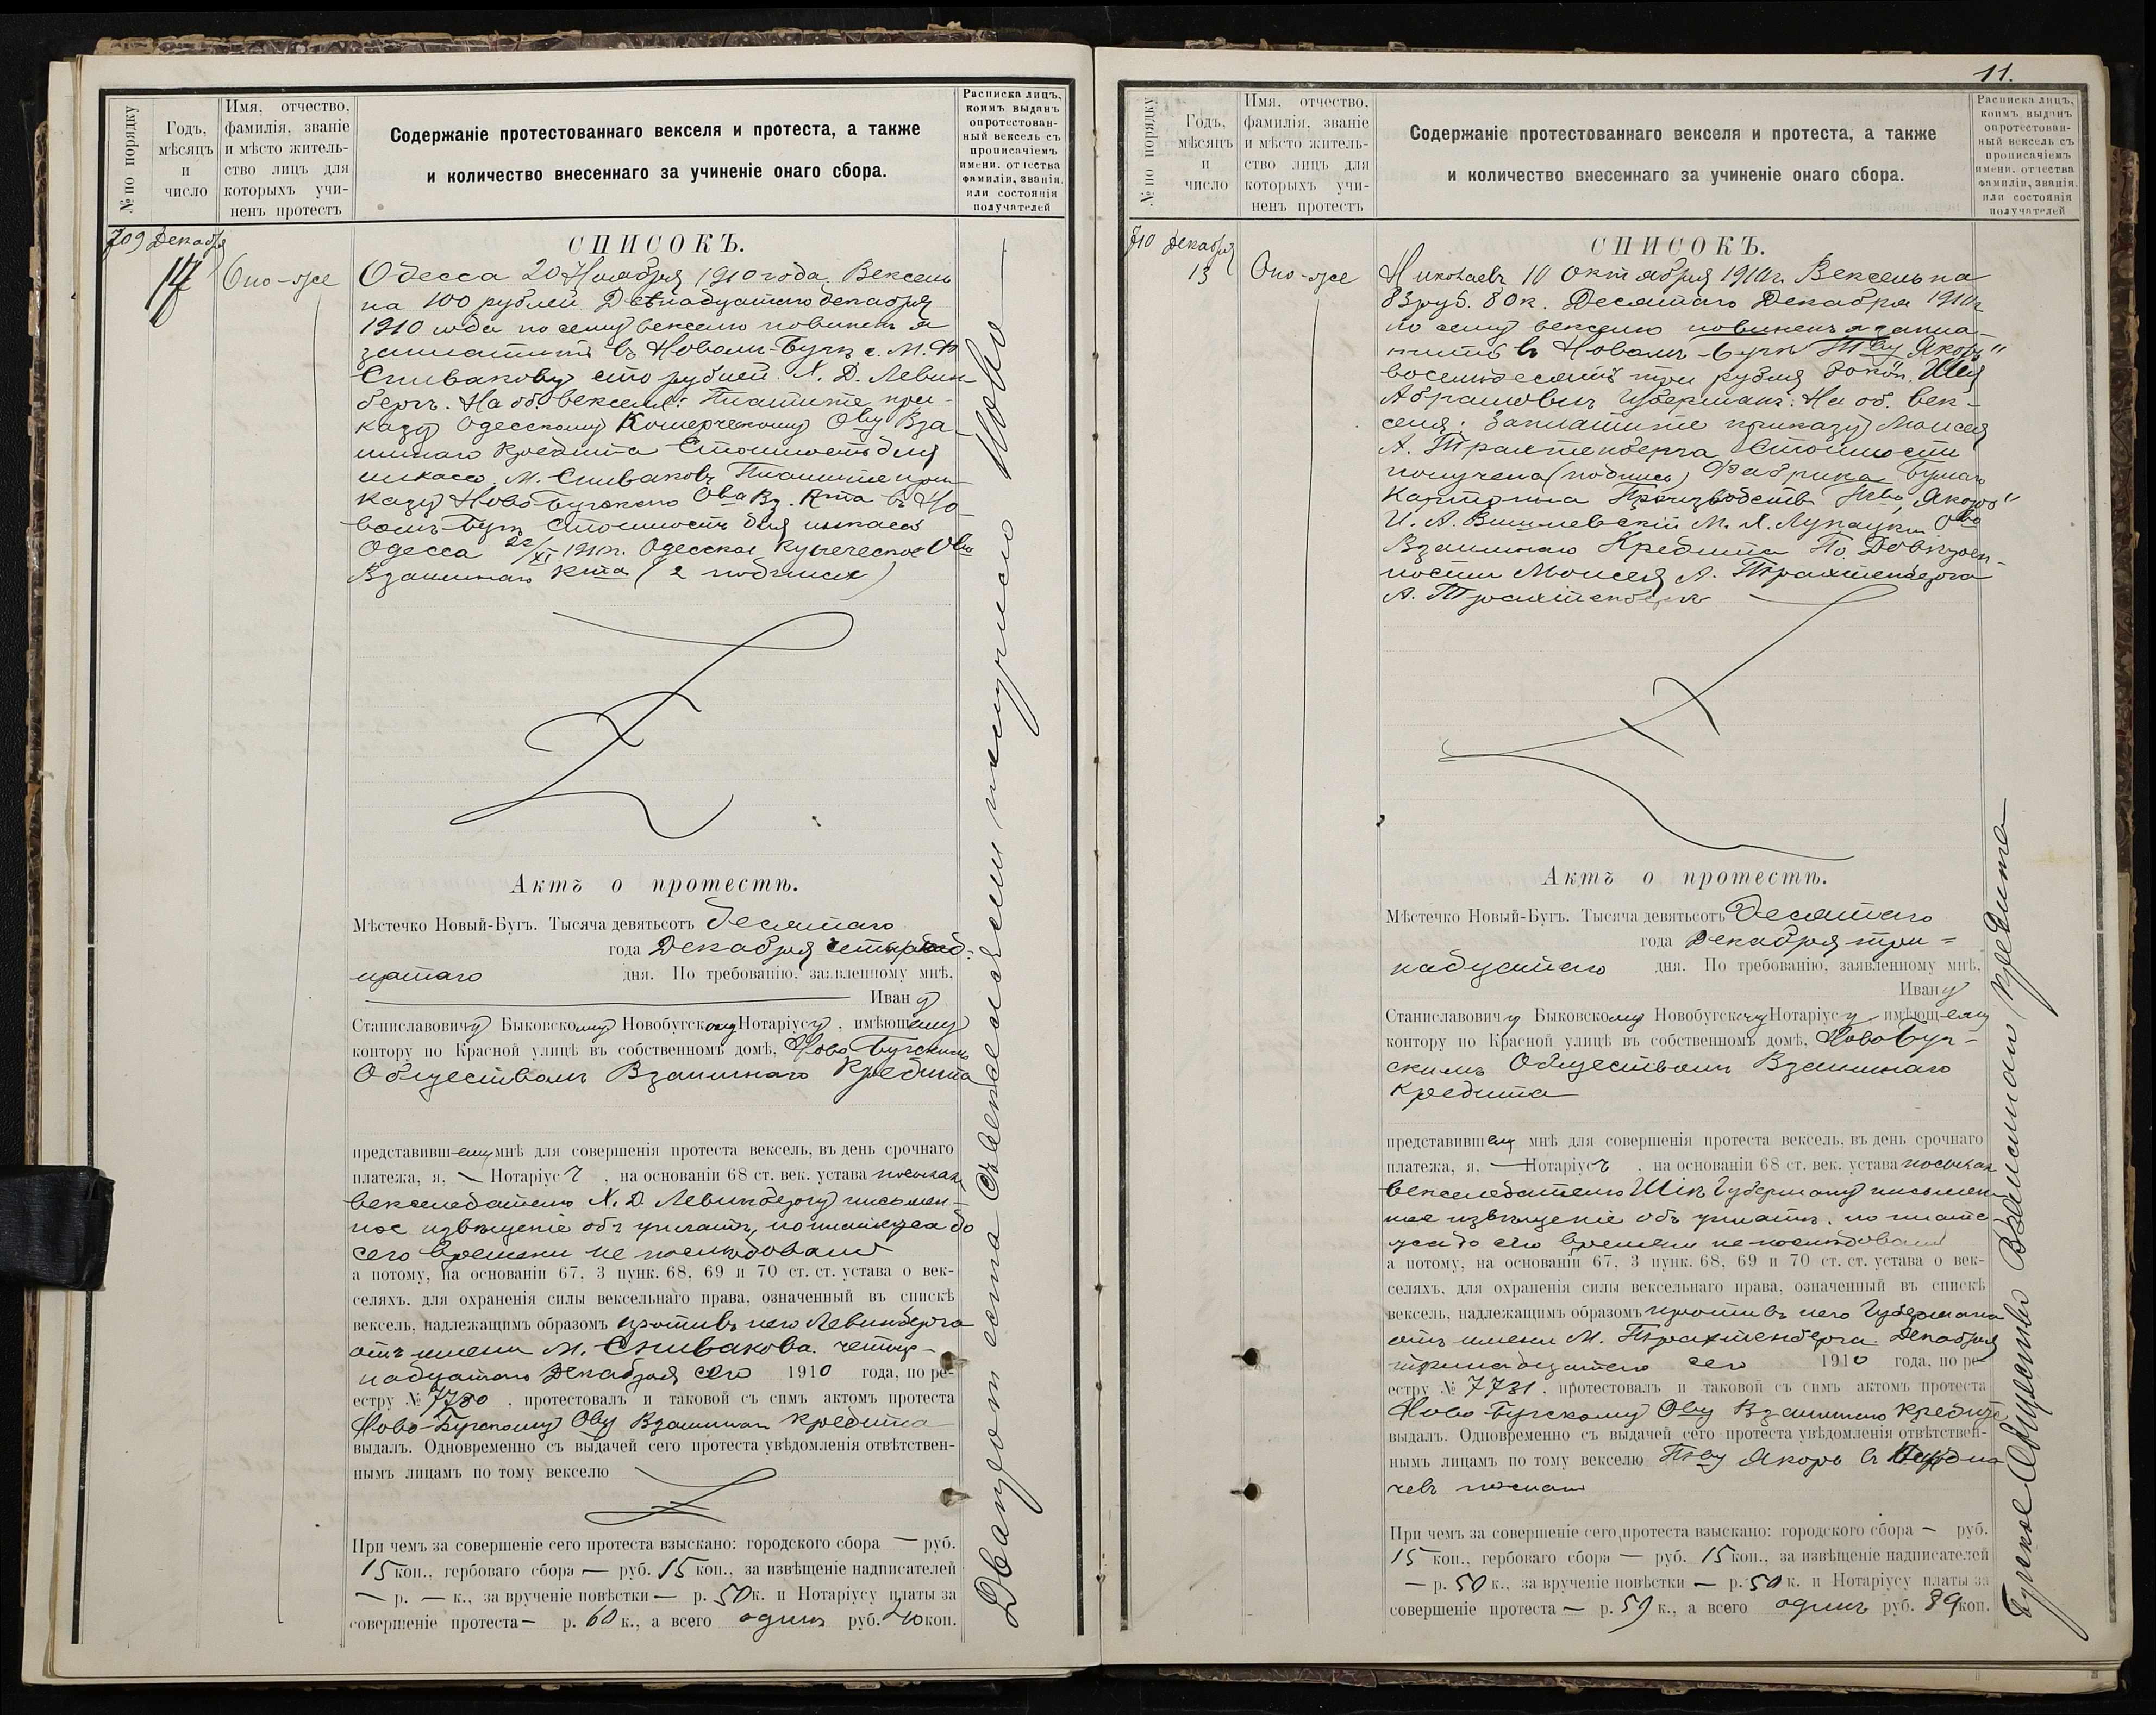 № по порядку
Годъ,
мѣсяцъ
и
число
Имя, отчество,
фамилія, званіе
и мѣсто житель-
ство лицъ для
которыхъ учи-
ненъ протестъ
Содержаніе протестованнаго векселя и протеста, а также
и количество внесеннаго за учиненіе онаго сбора.
Расписка лицъ,
коимъ выданъ
опротестован-
ный вексель съ
прописаніемъ
имени, отчества
фамиліи, званія,
или состоянія
получателей
709 Декабря
14
Оно-же
СПИСОКЪ.
Одесса 20 Ноября 1910 года. Вексель
на 100 рублей. Двѣнадцатаго декабря
1910 года по сему векселю повиненъ я
заплатить въ Новомъ-Бугѣ с. М. Ф
Спивакову сто рублей. Х. Д. Левин-
бергъ. На об. векселя: Платите при-
казу Одесскому Комерческому Ову Вза-
имнаго Кредита Стоимость для
инкасо. М. Спиваковъ Платите при-
казу Ново Бугскаго Ова Вз. Кта въ Но-
вомъ-Бугѣ Стоимость для инкасо
Одесса 22/XI 1910 г. Одесское Купеческое Ово
Взаимнаго Кта (2 подписи)
Актъ о протестѣ.
Мѣстечко Новый-Бугъ. Тысяча девятьсотъ десятаго
года Декабря четырнад-
цатаго дня. По требованію, заявленному мнѣ,
Ивану
Станиславовичу Быковскому Новобугскому Нотаріусу, имѣющему
контору по Красной улицѣ въ собственномъ домѣ, Ново Бугскимъ
Обществомъ Взаимнаго Кредита
представившему мнѣ для совершенія протеста вексель, въ день срочнаго
платежа, я, Нотаріусъ, на основаніи 68 ст. век. устава посылалъ
векселедателю Х. Д. Левинбергу письмен-
ное извѣщеніе объ уплатѣ, но платежа до
сего времени не послѣдовало
а потому, на основаніи 67, 3 пунк. 68, 69 и 70 ст. ст. устава о век-
селяхъ, для охраненія силы вексельнаго права, означенный въ спискѣ
вексель, надлежащимъ образомъ противъ него Левинберга
отъ имени М. Спивакова. четыр-
надцатаго Декабря сего 1910 года, по ре-
естру № 7730, протестовалъ и таковой съ симъ актомъ протеста
Ново-Бугскому Ову Взаимнаго Кредита
выдалъ. Одновременно съ выдачей сего протеста увѣдомленія отвѣтствен-
нымъ лицамъ по тому векселю
При чемъ за совершеніе сего протеста взыскано: городского сбора — руб.
15 коп., гербоваго сбора — руб. 15 коп., за извѣщеніе надписателей
— р. — к., за врученіе повѣстки — р. 50 к. и Нотаріусу платы за
совершеніе протеста — р. 60 к., а всего одинъ руб. 40 коп.
11.
№ по порядку
Годъ,
мѣсяцъ
и
число
Имя, отчество,
фамилія, званіе
и мѣсто житель-
ство лицъ для
которыхъ учи-
ненъ протестъ
Содержаніе протестованнаго векселя и протеста, а также
и количество внесеннаго за учиненіе онаго сбора.
Расписка лицъ,
коимъ выданъ
опротестован-
ный вексель съ
прописаніемъ
имени, отчества
фамиліи, званія,
или состоянія
получателей
710 Декабря
13
Оно-же
СПИСОКЪ.
Николаевъ 10 Октября 1910 г. Вексель на
83 руб. 80 к. Десятаго Декабря 1910 г
по сему векселю повиненъ я запла-
тить въ Новомъ-Бугѣ Тву „Якорь"
восемьдесятъ три рубля 80 коп. Шея
Абрамовичъ Губерманъ. На об. век-
селя: Заплатите приказу Моисея
А. Трахтенберга Стоимость
получена (подпись) Фабрика Бумаго
Картонна Производств Тво „Якорь"
И. А. Вишневскій М. Л. Лупацкій Ово
Взаимнаго Кредита По Довѣрен-
ности Моисея А. Трахтенберга
А. Трахтенбергъ
Актъ о протестѣ.
Мѣстечко Новый-Бугъ. Тысяча девятьсотъ Десятаго
года Декабря три-
надцатаго дня. По требованію, заявленному мнѣ,
Ивану
Станиславовичу Быковскому Новобугскому Нотаріусу имѣющему
контору по Красной улицѣ въ собственномъ домѣ, Ново Буг-
скимъ Обществомъ Взаимнаго
Кредита
представившему мнѣ для совершенія протеста вексель, въ день срочнаго
платежа, я, — Нотаріусъ, на основаніи 68 ст. век. устава посылалъ
векселедателю Шіи Губерману письмен-
ное извѣщеніе объ уплатѣ, но плате
жа до сего времени не послѣдовало
а потому, на основаніи 67, 3 пунк. 68, 69 и 70 ст. ст. устава о век-
селяхъ, для охраненія силы вексельнаго права, означенный въ спискѣ
вексель, надлежащимъ образомъ противъ него Губермана
отъ имени М. Трахтенберга. Декабря
тринадцатаго сего 1910 года, по ре-
естру № 7731, протестовалъ и таковой съ симъ актомъ протеста
Ново Бугскому Ову Взаимнаго Кредита
выдалъ. Одновременно съ выдачей сего протеста увѣдомленія отвѣтствен-
нымъ лицамъ по тому векселю Тву Якорь въ
чевъ послалъ
При чемъ за совершеніе сего протеста взыскано: городского сбора — руб.
15 коп., гербоваго сбора — руб. 15 коп., за извѣщеніе надписателей
— р. 50 к., за врученіе повѣстки — р. 50 к. и Нотаріусу платы за
совершеніе протеста — р. 59 к., а всего одинъ руб. 89 коп.
Бугское Общество Взаимнаго Кредита